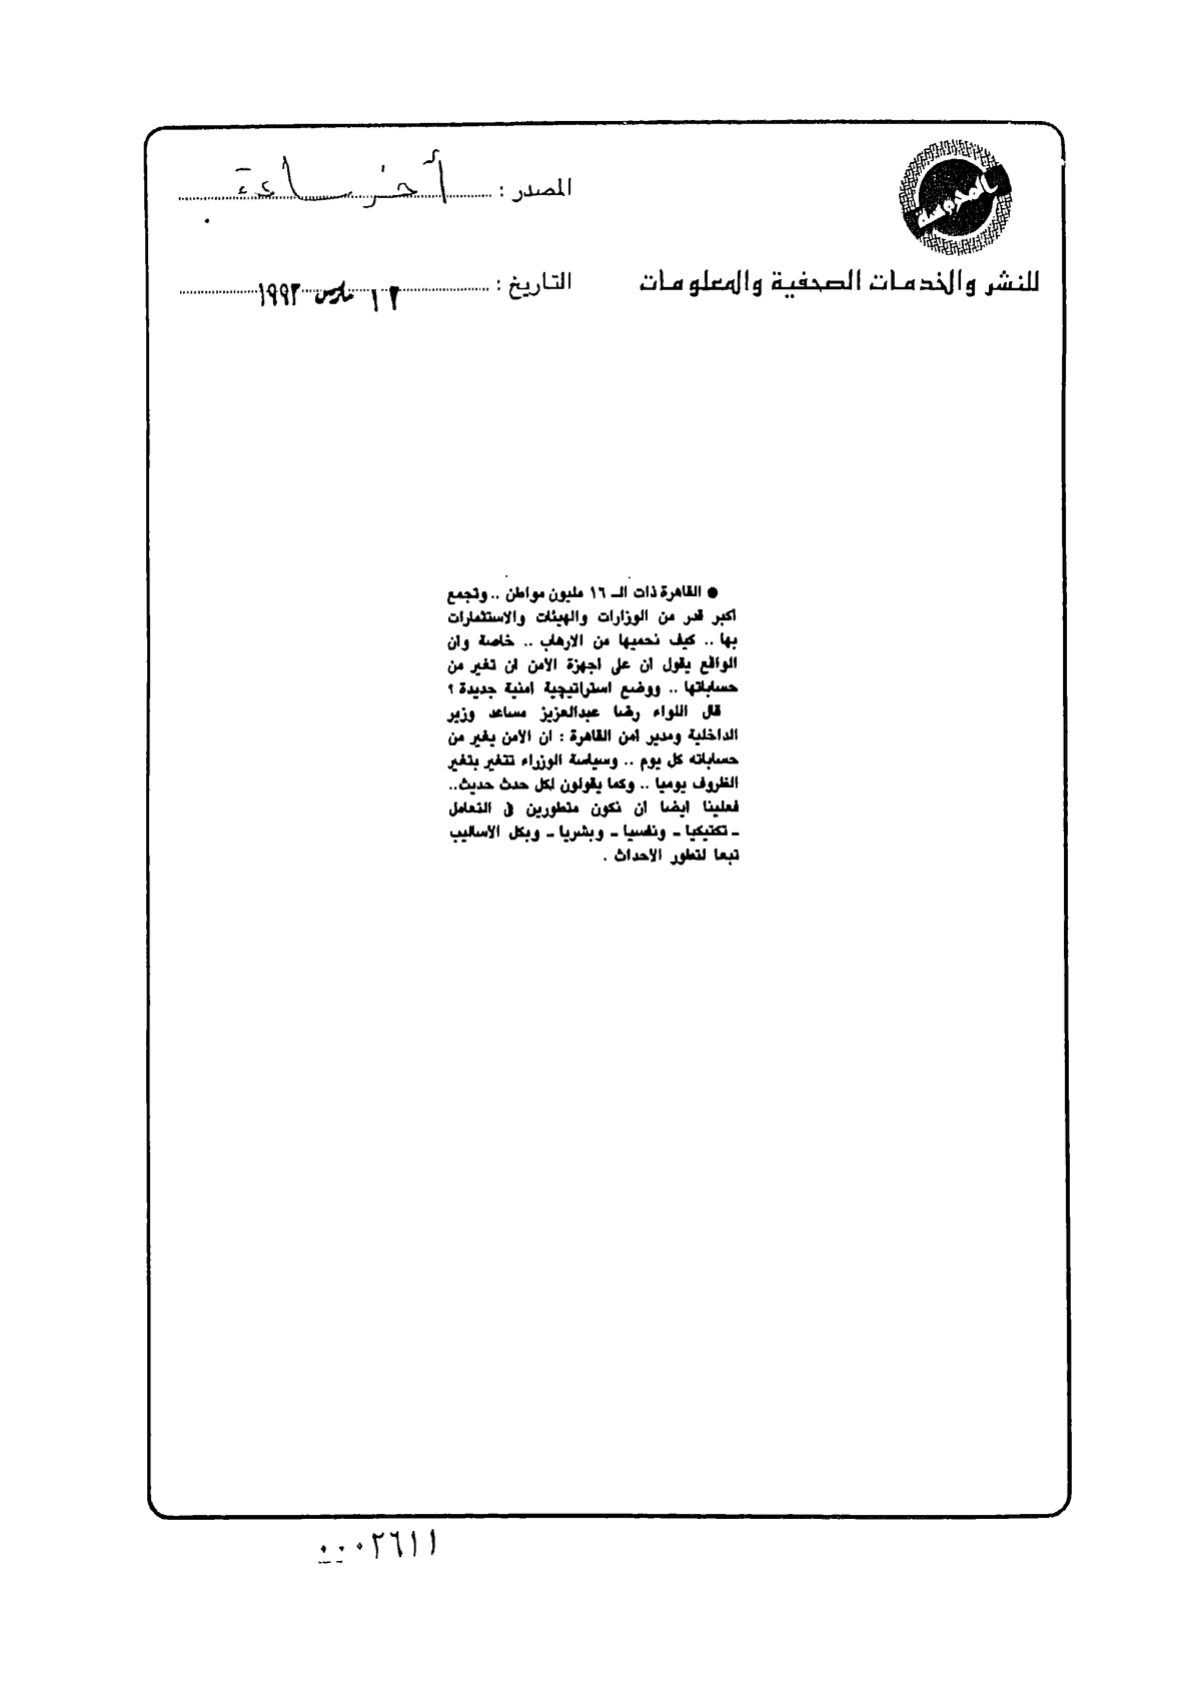 المصدر : أخر ساعة
للنشر والخدمات الصحفية والمعلومات
التاريخ : ١٢ مارس ١٩٩٢
● القاهرة ذات الـ ١٦ مليون مواطن .. وتجمع
اكبر قدر من الوزارات والهيئات والاستثمارات
بها .. كيف نحميها من الارهاب .. خاصة وان
الواقع يقول ان على اجهزة الامن ان تغير من
حساباتها .. ووضع استراتيجية امنية جديدة ؟
قال اللواء رضا عبدالعزيز مساعد وزير
الداخلية ومدير امن القاهرة : ان الامن يغير من
حساباته كل يوم .. وسياسة الوزراء تتغير بتغير
الظروف يوميا .. وكما يقولون لكل حدث حديث..
فعلينا ايضا ان نكون متطورين فى التعامل
ـ تكتيكيا ـ ونفسيا ـ وبشريا ـ وبكل الاساليب
تبعا لتطور الاحداث .
٠٠٠٢٦١١